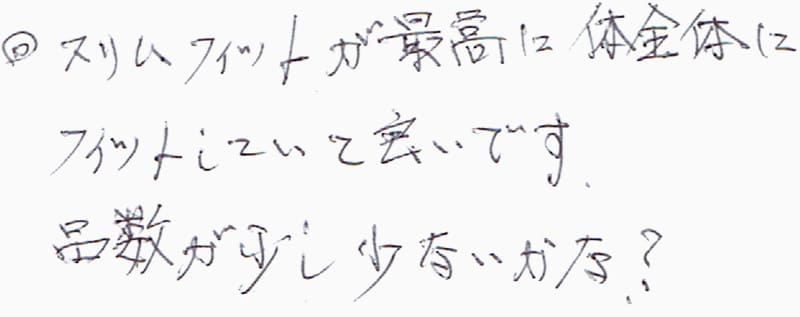 ◎スリムフィットが最高に体全体に
フィットしていて良いです。
品数が少し少ないかな?